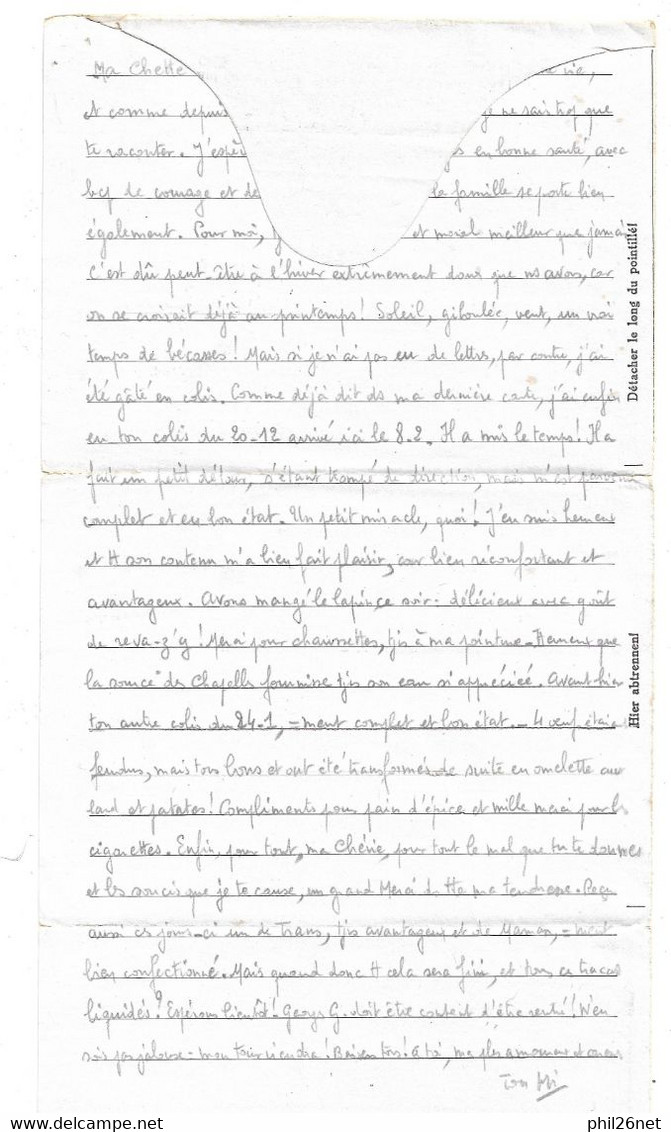 Ma Chette vie,
et comme depuis je ne sais trop que
te raconter. J'espère en bonne santé, avec
bcp de courage et de la famille se porte bien
également. Pour moi, et moral meilleur que jamais
C'est dû peut-être à l'hiver extrêmement doux que ns avons, car
on se croirait déjà au printemps! Soleil, giboulée, vent, un vrai
temps de bécasses! Mais si je n'ai pas eu de lettres, par contre, j'ai
été gâté en colis. Comme déjà dit ds ma dernière carte, j'ai enfin
eu ton colis du 20-12 arrivé ici le 8-2. Il a mis le temps! Il a
fait un petit détour, s'étant trompé de direction, mais m'est parvenu
complet et en bon état. Un petit miracle, quoi! J'en suis heureux
et tt son contenu m'a bien fait plaisir, car bien réconfortant et
avantageux. Avons mangé le lapin ce soir: délicieux avec goût
de reva-z'y! Merci pour chaussettes, tjs à ma pointure. Heureux que
la source des Chapelles fournisse tjs son eau si appréciée. Avant-hier
ton autre colis du 24-1, =ment complet et bon état. - 4 oeufs étaient
fendus, mais tous bons et ont été transformés de suite en omelette au
lard et patates! Compliments pour pain d'épice et mille merci pour les
cigarettes. Enfin, pour tout, ma Chérie, pour tout le mal que tu te donnes
et les soucis que je te cause, un grand Merci de tte ma tendresse. Reçu
aussi ces jours-ci un de Trans, tjs avantageux et de Maman, =ment
bien confectionné. Mais quand donc tt cela sera fini, et tous ces tracas
liquidés? Espérons bientôt! Georges G. doit être content d'être rentré! N'en
sois pas jalouse = mon tour viendra! Baisers tous! à toi, ma plus amoureuse et
Ton Mi
Détacher le long du pointillé!
Hier abtrennen!
phil26net